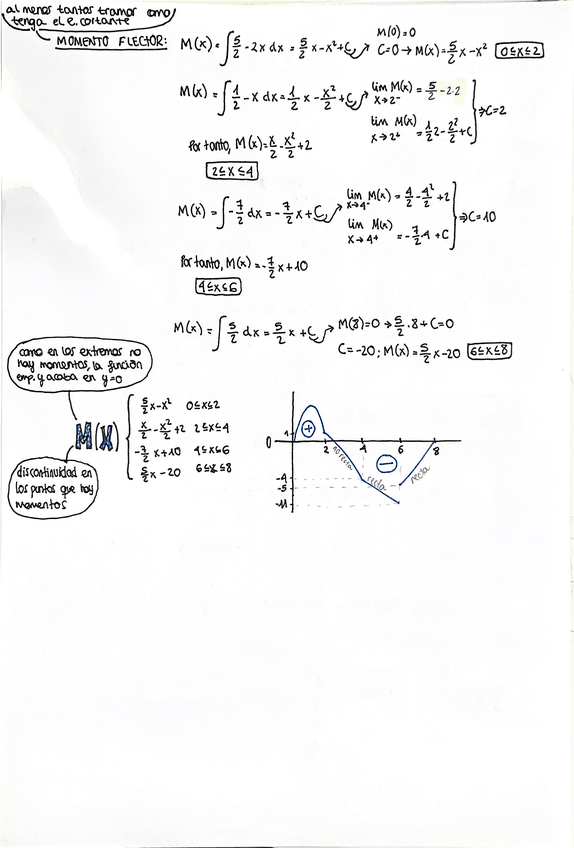 al menos tantos tramos como
tenga el e. cortante
MOMENTO FLECTOR:
M(x) = ∫ 5/2 - 2x dx = 5/2 x - x² + C
M(0) = 0
C = 0 → M(x) = 5/2 x - x² 0 ≤ x ≤ 2
M(x) = ∫ 1/2 - x dx = 1/2 x - x²/2 + C
lim x→2⁻ M(x) = 5/2 - 2·2
lim x→2⁺ M(x) = 1/2 2 - 2²/2 + C
⇒ C = 2
Por tanto, M(x) = x/2 - x²/2 + 2
2 ≤ x ≤ 4
M(x) = ∫ -7/2 dx = -7/2 x + C
lim x→4⁻ M(x) = 4/2 - 4²/2 + 2
lim x→4⁺ M(x) = -7/2·4 + C
⇒ C = 10
Por tanto, M(x) = -7/2 x + 10
4 ≤ x ≤ 6
M(x) = ∫ 5/2 dx = 5/2 x + C
M(8) = 0 → 5/2 · 8 + C = 0
C = -20; M(x) = 5/2 x - 20 6 ≤ x ≤ 8
como en los extremos no
hay momentos, la función
emp. y acaba en y=0
M(x)
5/2 x - x² 0 ≤ x ≤ 2
x/2 - x²/2 + 2 2 ≤ x ≤ 4
-7/2 x + 10 4 ≤ x ≤ 6
5/2 x - 20 6 ≤ x ≤ 8
discontinuidad en
los puntos que hay
momentos
1
0
-4
-5
-11
2
4
6
8
+
−
no recta
recta
recta